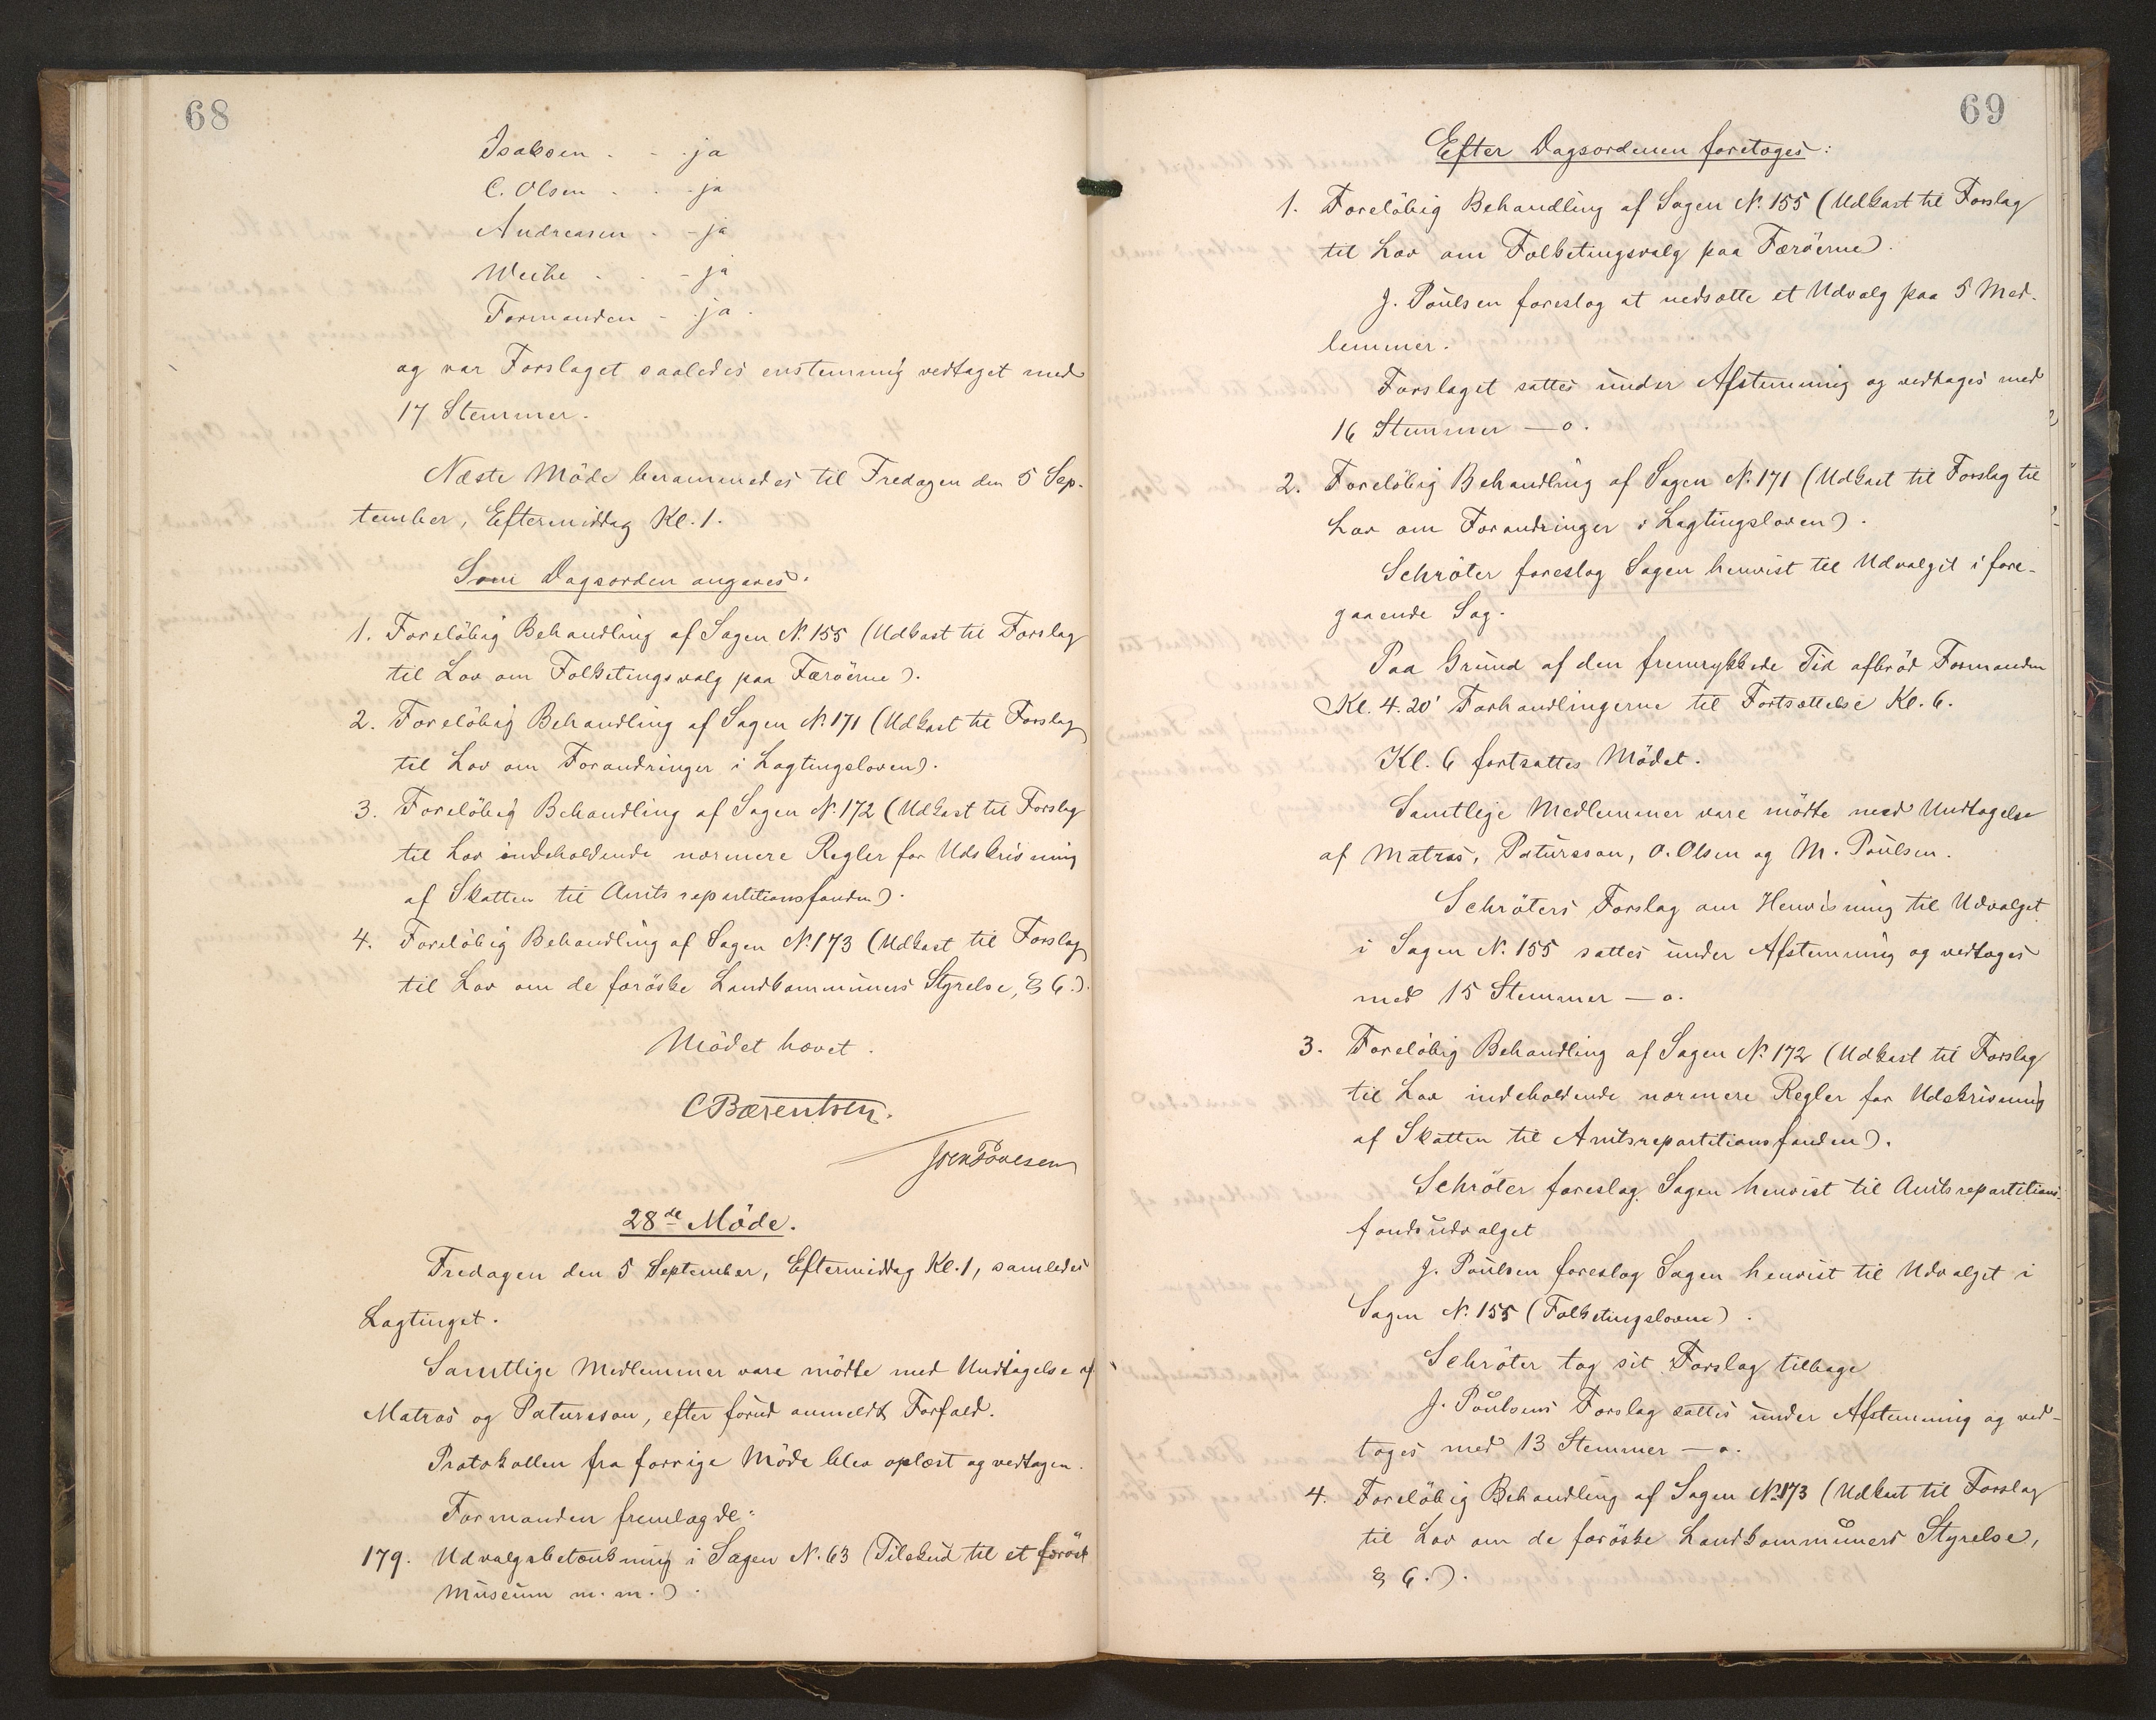 68
Isaksen - - ja
C. Olsen - - ja
Andreasen - - ja
Weihe - - - ja
Formanden - ja.
og var Forslaget saaledes enstemmig vedtaget med
17 Stemmer.
Næste Möde berammedes til Fredagen den 5 Sep-
tember, Eftermiddag Kl. 1.
Som Dagsorden angaves:
1. Foreløbig Behandling af Sagen N. 155 (Udkast til Forslag
til Lov om Folketingsvalg paa Færöerne).
2. Forelöbig Behandling af Sagen N. 171 (Udkast til Forslag
til Lov om Forandringer i Lagtingsloven).
3. Forelöbig Behandling af Sagen N. 172 (Udkast til Forslag
til Lov indeholdende nærmere Regler for Udskrivning
af Skatten til Amtsrepartitionsfonden).
4. Forelöbig Behandling af Sagen N. 173 (Udkast til Forslag
til Lov om de færöske Landkommuners Styrelse, § 6.).
Mödet hævet.
C Bærentsen.
Poulsen
28de Möde.
Fredagen den 5 September, Eftermiddag Kl. 1, samledes
Lagtinget.
Samtlige Medlemmer vare mödte med Undtagelse af
Matras og Patursson, efter forud anmeldt Forfald.
Protokollen fra forrige Möde blev oplæst og vedtagen.
Formanden fremlagde:
179. Udvalgsbetænkning i Sagen N. 63 (Tilskud til et færösk
Museum m. m.).
69
Efter Dagsordenen foretoges:
1. Forelöbig Behandling af Sagen N. 155 (Udkast til Forslag
til Lov om Folketingsvalg paa Færöerne).
J. Poulsen foreslog at nedsætte et Udvalg paa 5 Med-
lemmer.
Forslaget sattes under Afstemning og vedtoges med
16 Stemmer — o.
2. Forelöbig Behandling af Sagen N. 171 (Udkast til Forslag til
Lov om Forandringer i Lagtingsloven).
Schröter foreslog Sagen henvist til Udvalget i fore-
gaaende Sag.
Paa Grund af den fremrykkede Tid afbröd Formanden
Kl. 4. 20' Forhandlingerne til Fortsættelse Kl. 6.
Kl. 6 fortsattes Mödet.
Samtlige Medlemmer vare mödte med Undtagelse
af Matras, Patursson, O. Olsen og M. Poulsen.
Schröters Forslag om Henvisning til Udvalget
i Sagen N. 155 sattes under Afstemning og vedtoges
med 15 Stemmer — o.
3. Forelöbig Behandling af Sagen N. 172 (Udkast til Forslag
til Lov indeholdende nærmere Regler for Udskrivning
af Skatten til Amtsrepartitionsfonden).
Schröter foreslog Sagen henvist til Amtsrepartitions-
fondsudvalget
J. Poulsen foreslog Sagen henvist til Udvalget i
Sagen N. 155 (Folketingslovene).
Schröter tog sit Forslag tilbage
J. Poulsens Forslag sattes under Afstemning og ved-
toges med 13 Stemmer — o.
4. Forelöbig Behandling af Sagen N. 173 (Udkast til Forslag
til Lov om de færöske Landkommuners Styrelse,
§ 6.).